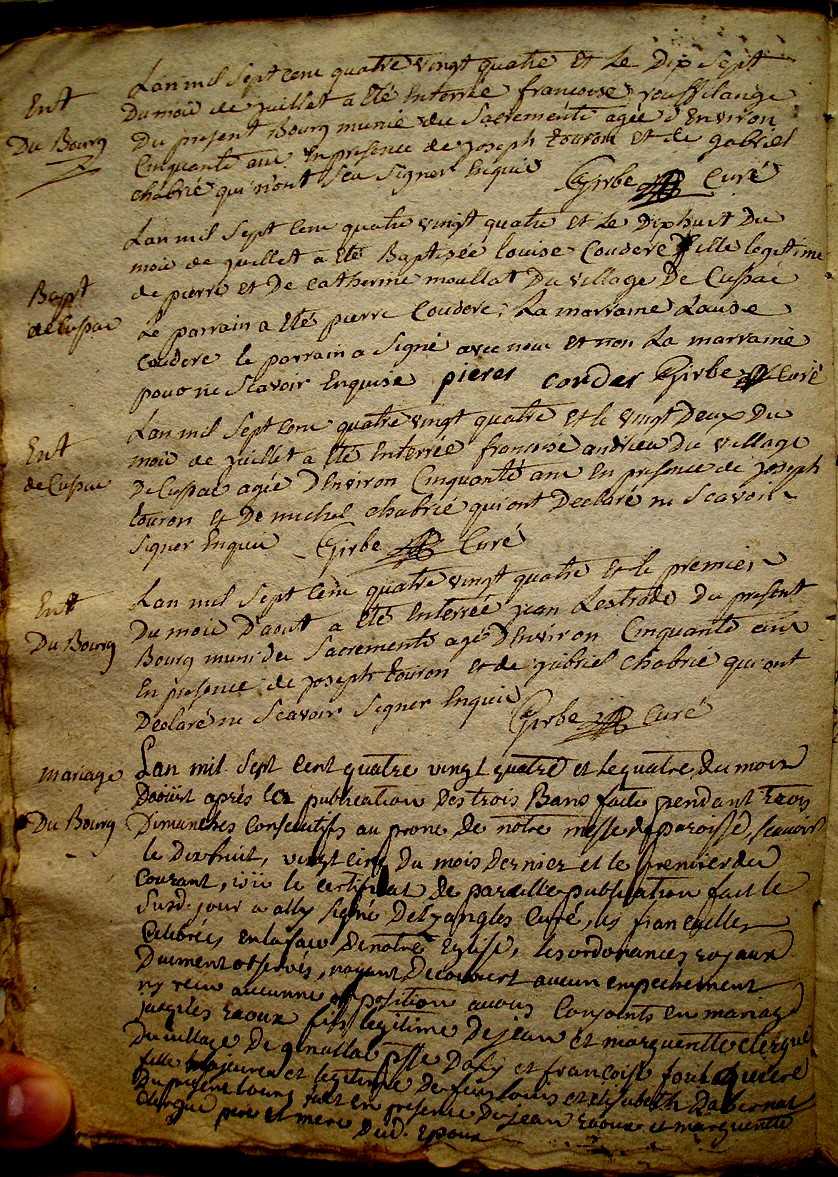 Ent
Du Bourg
Lan mil Sept cent quatre vingt quatre et Le Dix Sept
Du mois de juillet a été Enterrée francoise rouffilange
Du present Bourg munie des Sacrements agée d'Environ
Cinquante ans En presence de joseph touron et de gabriel
chabrié qui n'ont Sçu Signer Enquis Girbe Curé
Bapt
de Cussac
Lan mil Sept Cent quatre vingt quatre et Le Dixhuit Du
mois de juillet a été Baptisée louise Couderc fille legitime
de pierre et De catherine moullat Du village De Cussac
Le parrain a été pierre Couderc, La marraine Louise
Couderc le parrain a Signé avec nous et non La marraine
pour ne Scavoir Enquise pieres couder Girbe Curé
Ent
de Cussac
Lan mil Sept Cent quatre vingt quatre et le vingt Deux Du
mois de juillet a été Enterrée francoise andrieu Du village
De Cussac agée D'Environ Cinquante ans En presence de joseph
touron et De michel chabrié qui ont Declaré ne Scavoir
Signer Enquis Girbe Curé
Ent
Du Bourg
Lan mil Sept Cent quatre vingt quatre et le premier
Du mois D'aout a été Enterré jean Lestrade du present
Bourg muni des Sacrements agé D'Environ Cinquante ans
En presence de joseph touron et de gabriel chabrié qui ont
Declaré ne Scavoir Signer Enquis Girbe Curé
mariage
Du Bourg
Lan mil Sept Cent quatre vingt quatre et le quatre du mois
Daoüst aprés la publication Des trois Bans faite pendant trois
Dimanches Consecutifs au prone De notre messe de paroisse, scavoir
le Dixhuit, vingt cinq du mois Dernier et le premier du
Courant, vû le certificat De pareille publication fait le
Susd. jour a ally Signé Delzangles Curé, les fiancailles
Celebrées En la face De notre Eglise, les ordonances royaux
Duement observés, n'ayant Decouvert aucun empechement
ny recu aucunne opposition avons Conjoints en mariage
jacques raoux fils legitime De jean et marguerite clergue
Du village De psse Dally et francoise
fille majeure et legitime De feu Louis et Elisabeth
Du present bourg fait en presence De jean raoux et marguerite
Clergue pere et mere Dud. Epoux